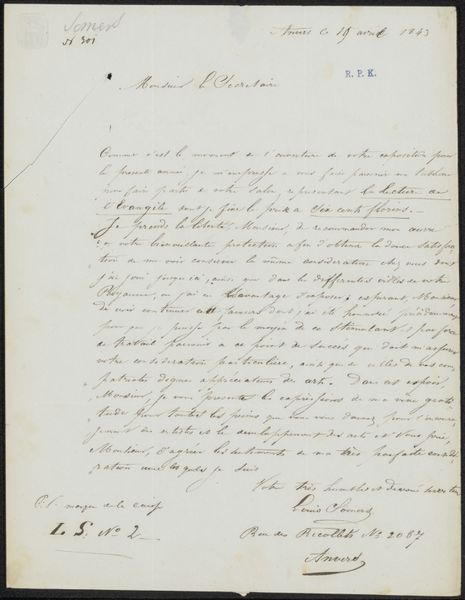 Somers
N 301
Anvers ce 19 avril 1843
R. P. K.
Monsieur le Secretaire
Comme c'est le moment de l'ouverture de votre exposition pour
la presente année je m'empresse a vous faire parvenir un tableau
pour faire partie de votre Salon, representant la lecture de
l'Evangile dont je fixe le prix a Six cents florins. —
Je prends la liberté, Monsieur, de recommander mon œuvre
a votre bienveillante protection afin d'obtenir la douce satisfac
tion de me voir conserver la même consideration chez vous dont
j'ai joui jusqu'ici, ainsi que dans les differentes villes de votre
Royaume, ou j'ai eu l'avantage d'exposer; esperant, Monsieur,
de voir continuer ces faveurs dont j'ai été honoré
pour que je puisse par le moyen de ce stimulant a force
de travail parvenir a ce point de succès que doit m'assurer
votre consideration particulière, ainsi que celle de vos com
patriotes dignes appreciateurs des arts. Dans cet espoir,
Monsieur, je vous presente les expressions de ma vive grati
tude pour toutes les peines que vous vous donnez pour l'encoura
gement des artistes et le developpement des arts et vous prie,
Monsieur, d'agréer les sentiments de ma très parfaite consi
deration avec lesquels je suis
Votre très humble et devoué serviteur
Louis Somers
Rue des Recollets No 2087
Anvers
P. S. marque de la caisse
L. S. No 2 —